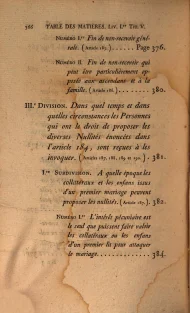 588 TABLE DES MATIÈRES. Liv. I.er Tit. V.
NUMÉRO I.er Fin de non-recevoir géné-
rale. (Article 185.)...... Page 376.
NUMÉRO II. Fin de non-recevoir qui
peut être particulièrement op-
posée aux ascendans et à la
famille. (Article 186.)....... 380.
III.e DIVISION. Dans quel temps et dans
quelles circonstances les Personnes
qui ont le droit de proposer les
diverses Nullités énoncées dans
l'article 184, sont reçues à les
invoquer. (Articles 187, 188, 189 et 190.). 381.
I.re SUBDIVISION. A quelle époque les
collatéraux et les enfans issus
d'un premier mariage peuvent
proposer les nullités. (Article 187.). 382.
NUMÉRO I.er L'intérêt pécuniaire est
le seul que puissent faire valoir
les collatéraux ou les enfans
d'un premier lit pour attaquer
le mariage............... 384.